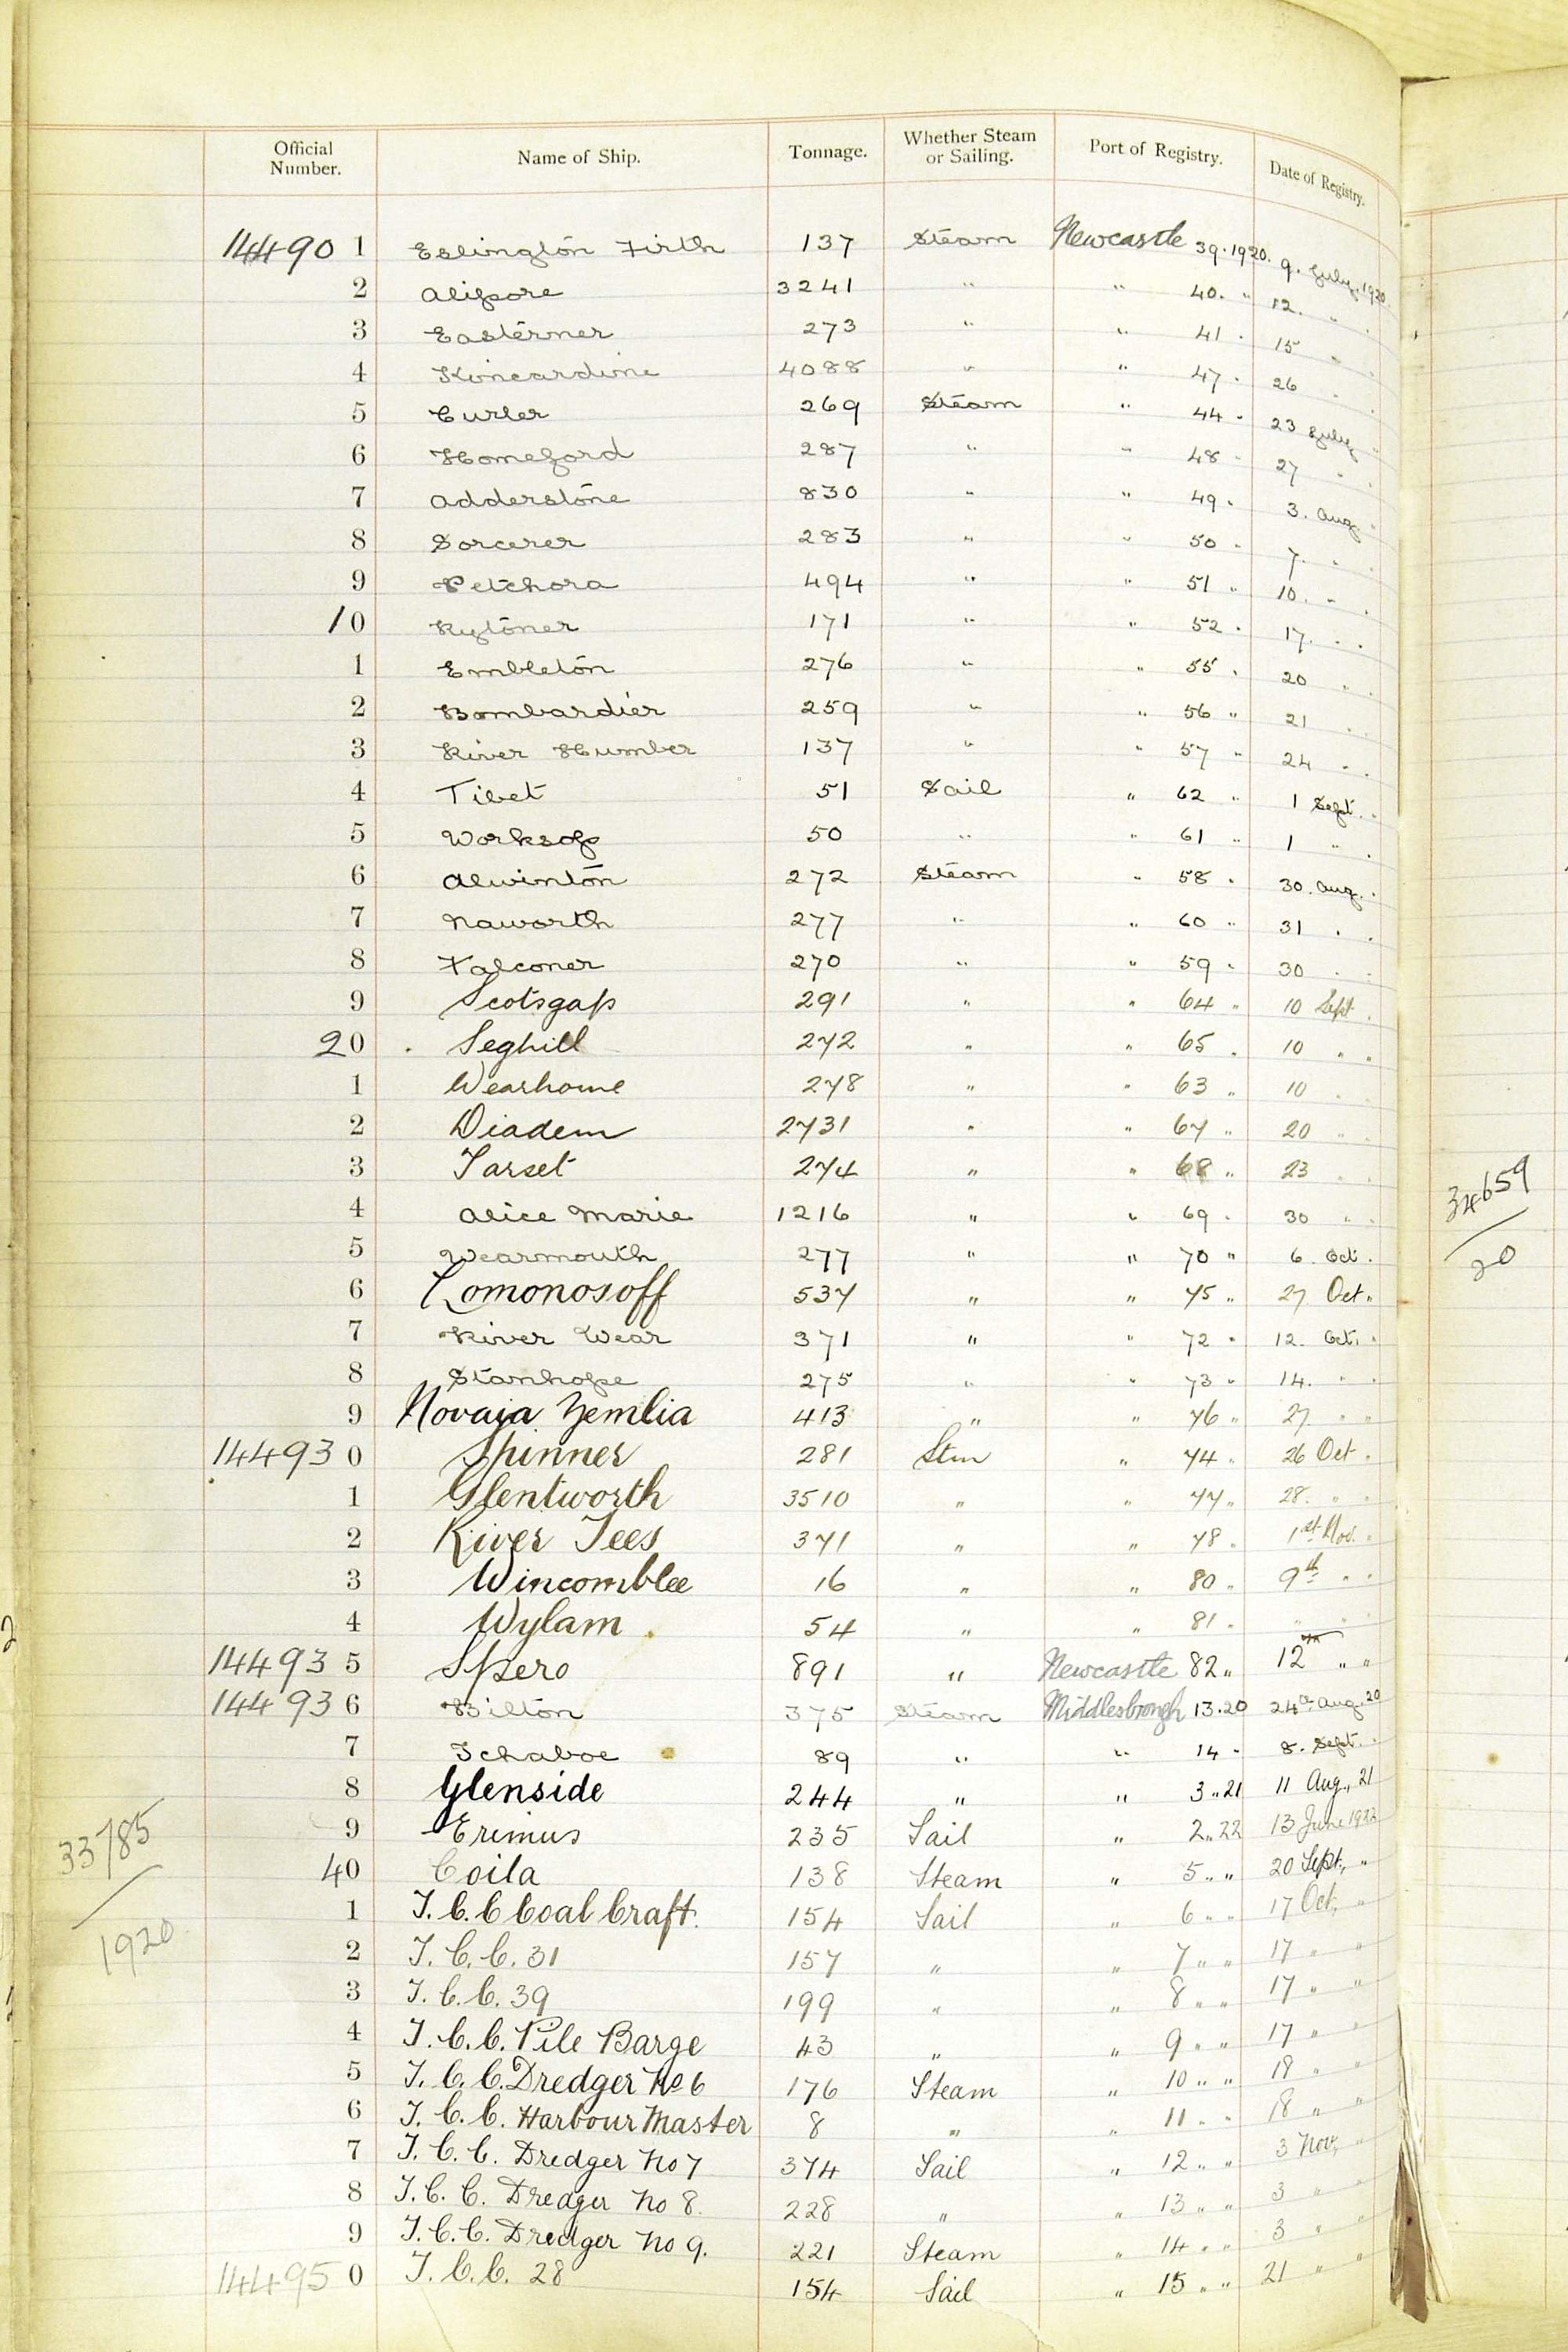 Official Number. Name of Ship. Tonnage. Whether Steam or Sailing. Port of Registry. Date of Registry.
144901 Eslington Firth 137 Steam Newcastle 39.1920. 9. July. 1920.
2 Alipore 3241 " " 40. " 12. " "
3 Easterner 273 " " 41 " 15 " "
4 Kincardine 4088 " " 47 " 26 " "
5 Curler 269 Steam " 44 " 23 July "
6 Homeford 287 " " 48 " 27 " "
7 Adderstone 830 " " 49 " 3. Aug "
8 Sorcerer 283 " " 50 " 7. " "
9 Petchora 494 " " 51 " 10. " "
10 Rytoner 171 " " 52 " 17. " "
1 Embleton 276 " " 55 " 20 " "
2 Bombardier 259 " " 56 " 21 " "
3 River Humber 137 " " 57 " 24 " "
4 Tibet 51 Sail " 62 " 1 Sept. "
5 Worksop 50 " " 61 " 1 " "
6 Alwinton 272 Steam " 58 " 30. Aug. "
7 Naworth 277 " " 60 " 31 " "
8 Falconer 270 " " 59 " 30 " "
9 Scotsgap 291 " " 64 " 10 Sept "
20 Seghill 272 " " 65 " 10 " "
1 Wearhome 278 " " 63 " 10 " "
2 Diadem 2731 " " 67 " 20 " "
3 Tarset 274 " " 68 " 23 " "
4 Alice Marie 1216 " " 69 " 30 " "
5 Wearmouth 277 " " 70 " 6. Oct. "
6 Lomonosoff 537 " " 75 " 27 Oct "
7 River Wear 371 " " 72 " 12. Oct. "
8 Stanhope 275 " " 73 " 14. " "
9 Novaia Zemlia 413 " " 76 " 27. " "
144930 Spinner 281 Stm " 74 " 26 Oct "
1 Glentworth 3510 " " 77 " 28. " "
2 River Tees 371 " " 78 " 1st Nov. "
3 Wincomblee 16 " " 80 " 9th " "
4 Wylam 54 " " 81 " " " "
144935 Spero 891 " Newcastle 82 " 12th " "
144936 Bilton 375 Steam Middlesbrough 13.20 24th Aug. 20
7 Ichaboe 89 " " 14 " 8. Sept. "
8 Glenside 244 " " 3 " 21 11 Aug., 21
9 Erimus 235 Sail " 2 " 22 13 June 1922
40 Coila 138 Steam " 5 " " 20 Sept., "
1 T.C.C Coal Craft. 154 Sail " 6 " " 17 Oct, "
2 T.C.C. 31 157 " " 7 " " 17 " "
3 T.C.C. 39 199 " " 8 " " 17 " "
4 T.C.C. Pile Barge 43 " " 9 " " 17 " "
5 T.C.C. Dredger No 6 176 Steam " 10 " " 18 " "
6 T.C.C. Harbour Master 8 " " 11 " " 18 " "
7 T.C.C. Dredger No 7 374 Sail " 12 " " 3 Nov, "
8 T.C.C. Dredger No 8. 228 " " 13 " " 3 " "
9 T.C.C. Dredger No 9. 221 Steam " 14 " " 3 " "
144950 T.C.C. 28 154 Sail " 15 " " 21 " "
33785
1920
34659
20